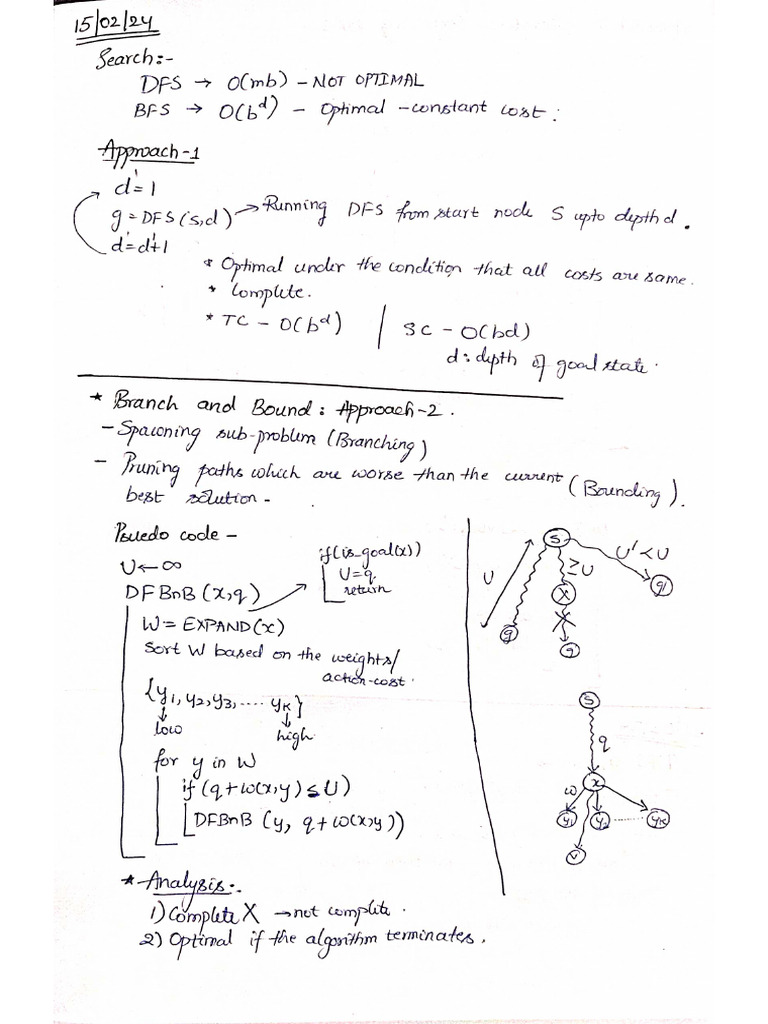 15/02/24
Search:-
DFS → O(mb) - NOT OPTIMAL
BFS → O(b^d) - Optimal - constant cost :
Approach-1
d' = 1
g = DFS(s,d) → Running DFS from start node S upto depth d.
d' = d'+1
* Optimal under the condition that all costs are same.
* Complete.
* TC - O(b^d) | SC - O(bd)
d : depth of goal state.
* Branch and Bound : Approach-2.
- Spawning sub-problem (Branching)
- Pruning paths which are worse than the current (Bounding).
best solution -
Psuedo code -
if(is_goal(x))
U ← ∞
U = q
DFBnB (x,q)
return
W = EXPAND(x)
Sort W based on the weights/
action-cost.
{y1, y2, y3, .... yK}
low
high
for y in W
if (q + w(x,y) ≤ U)
DFBnB (y, q + w(x,y))
S
U' < U
U
≥ U
X
g
g
g'
S
q
x
w
y1 y2 ...... yK
v
* Analysis:-
1) Complete X → not complete.
2) Optimal if the algorithm terminates.